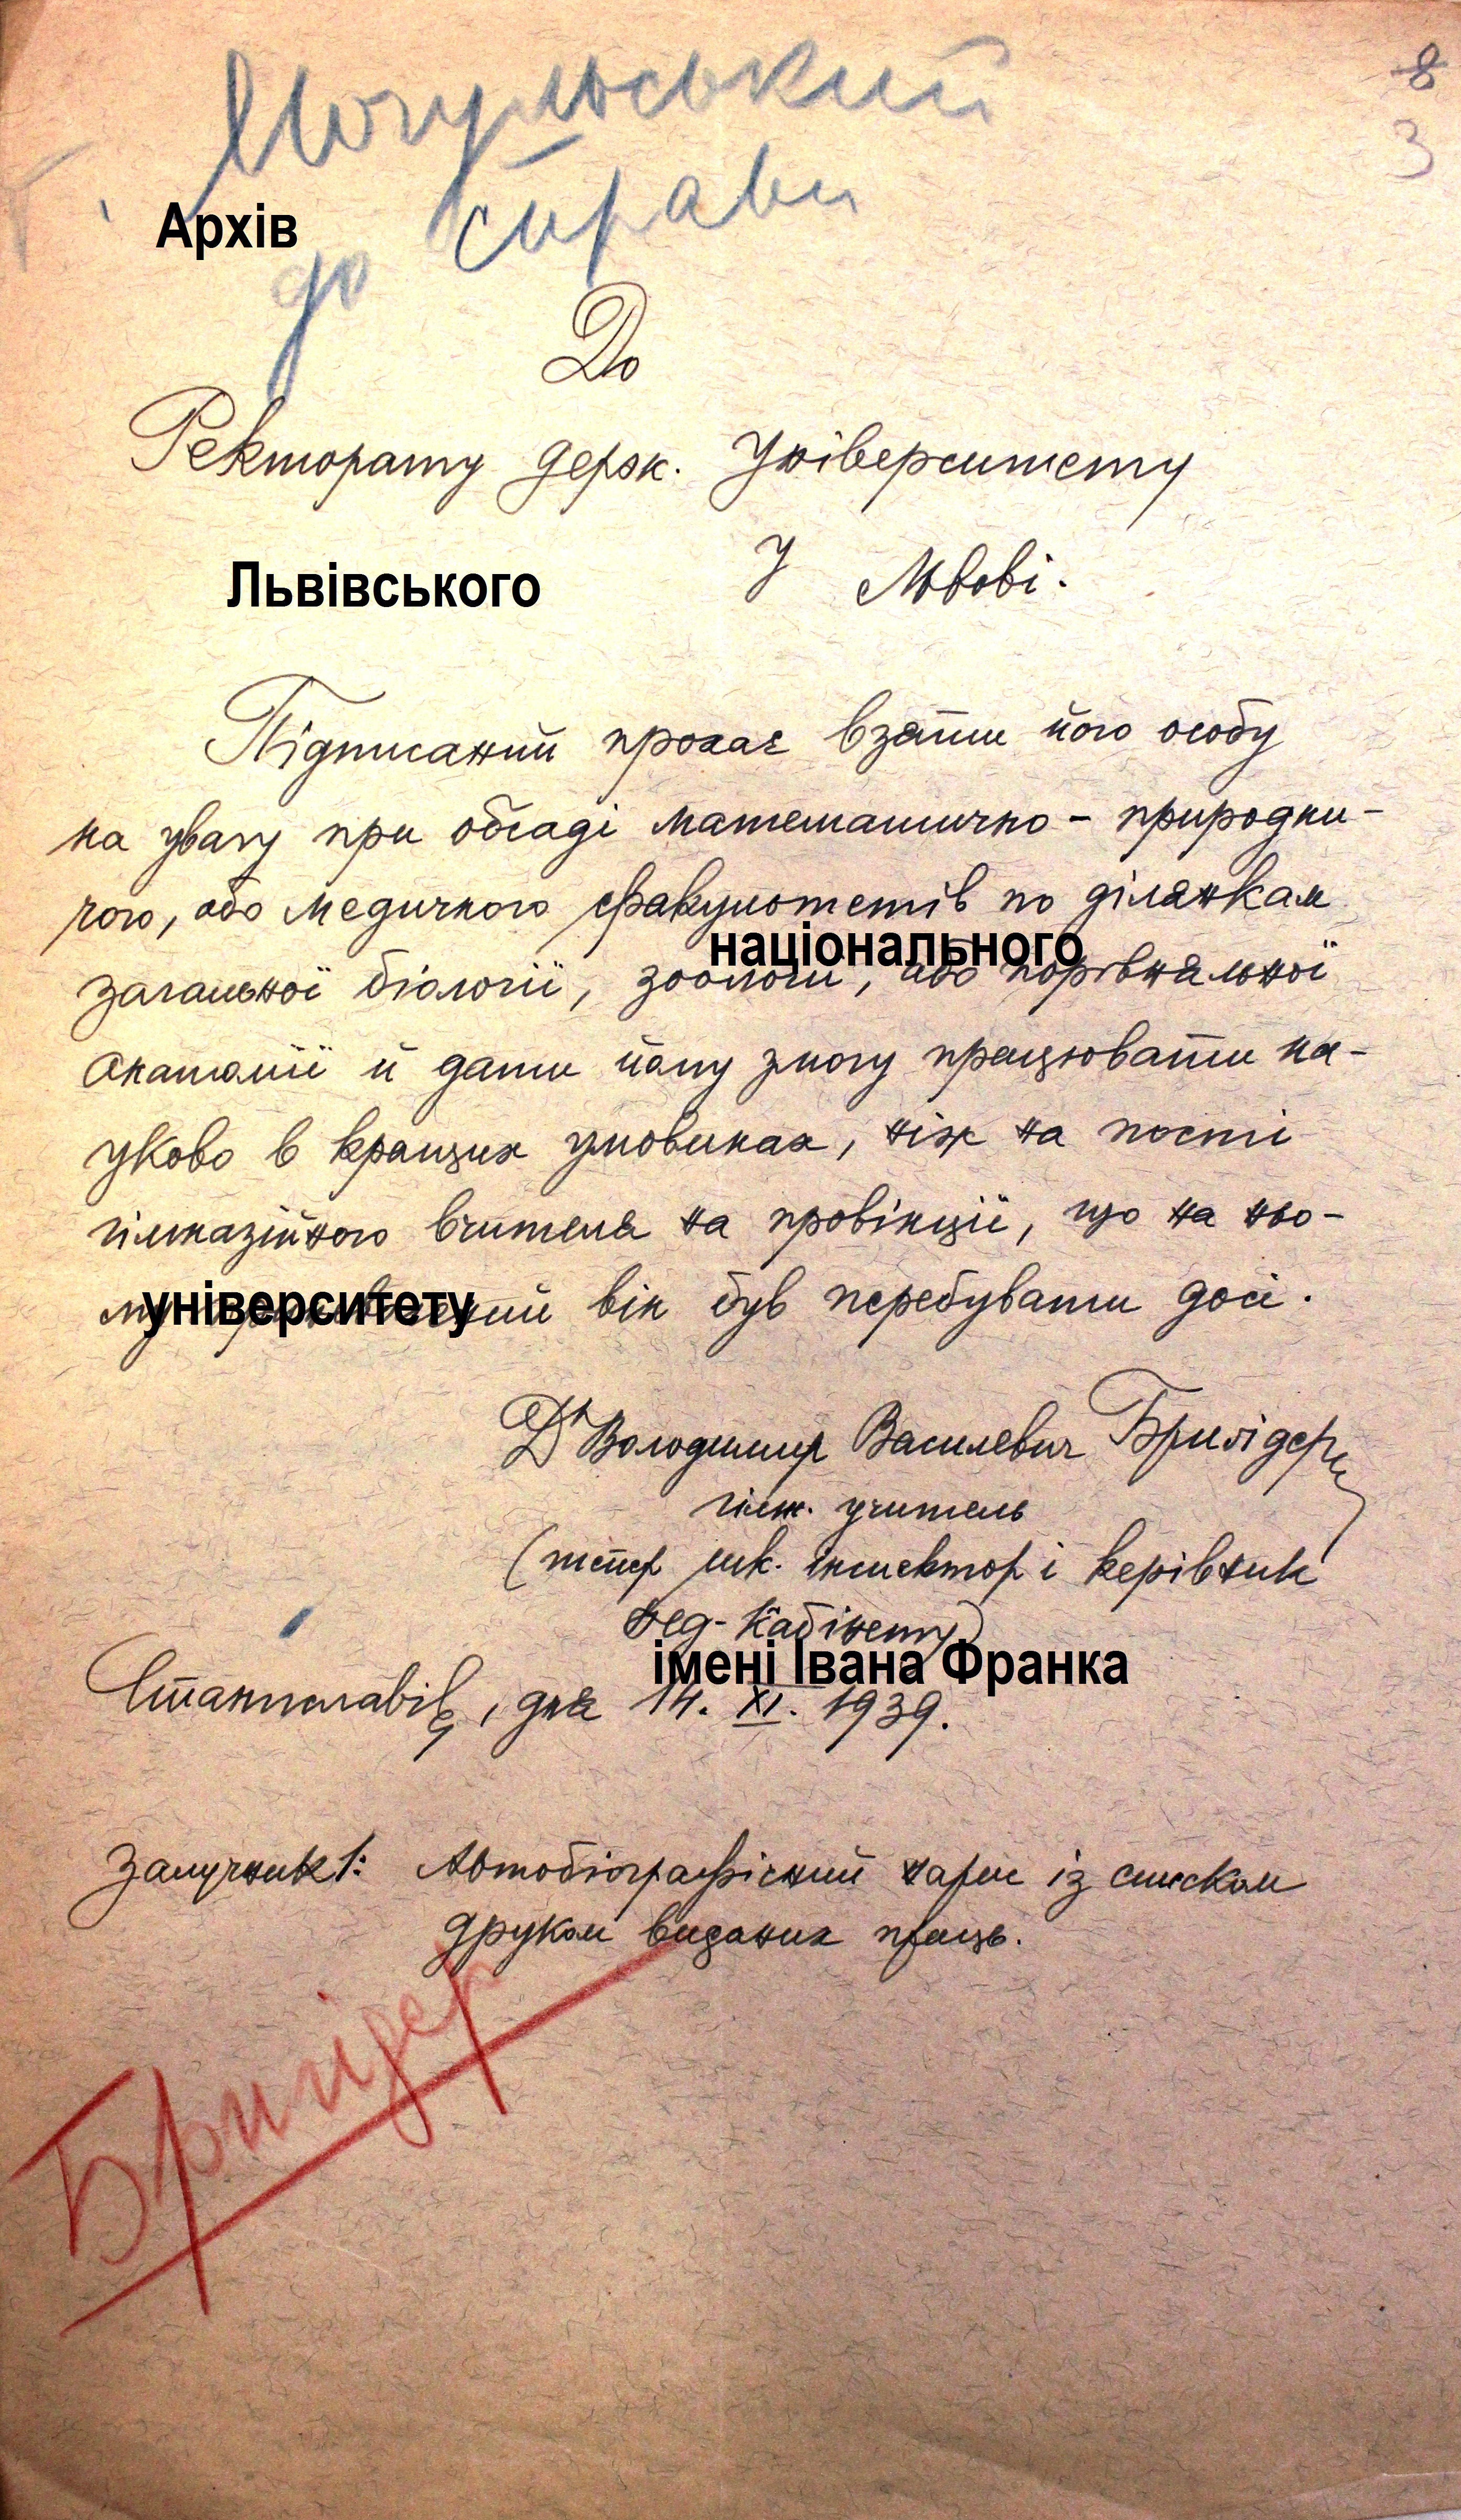 8
3
Могульський
Архів
до справи
До
Ректорату держ. Університету
Львівського
у Львові.
Підписаний прохає взяти його особу
на увагу при обсаді математично - природни-
чого, або медичного факультетів по ділянкам
національного
загальної біології, зоології, або порівняльної
анатомії й дати йому змогу працювати на-
уково в кращих умовинах, ніж на пості
гімназійного вчителя на провінції, що на ньо-
університету
му він був перебувати досі.
Др Володимир Василевич Бригідер
гімн. учитель
(тепер шк. інспектор і керівник
пед-кабінету)
імені Івана Франка
Станиславів, дня 14. XI. 1939.
Залучник 1: Автобіографічний нарис із списком
друком виданих праць.
Бригідер